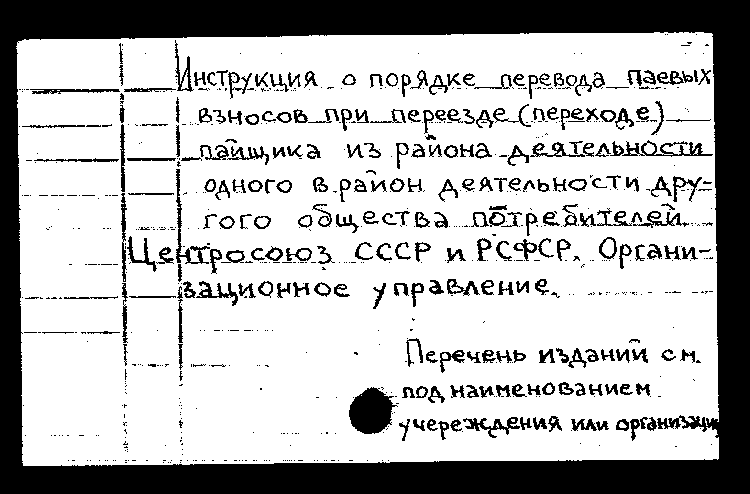 Инструкция о порядке перевода паевых
взносов при переезде (переходе)
пайщика из района деятельности
одного в район деятельности дру-
гого общества потребителей.
Центросоюз СССР и РСФСР. Органи-
зационное управление.
Перечень изданий см.
под наименованием
учереждения или организации